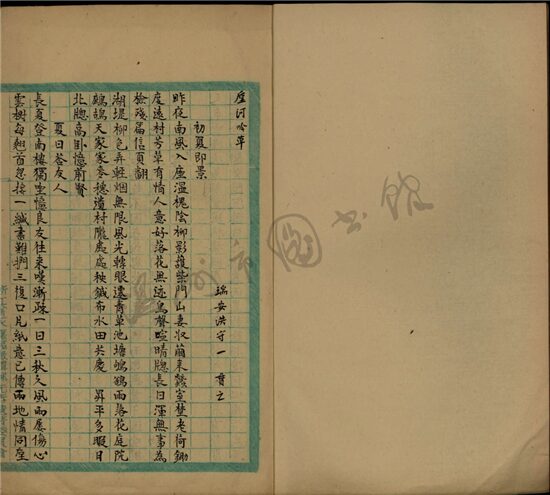 河吟草
瑞安洪守一貫之
初夏即景
昨夜南風入座溫槐陰柳影護柴門山妻收繭來蠶室埜老荷鋤
度遠村芳草有情人意好落花無迹鳥聲喧晴牕長日渾無事為
檢殘篇信頁翻
湖堤柳色弄輕烟無限風光轉眼遷青草池塘雨落花庭院
鷓鴣天家家麥穗遺村隴處處秧鍼布水田共慶 昇平多暇日
北牕高卧憶前賢
夏日答友人
長夏登南樓獨坐憶良友往來嘆漸踈一日三秋久風雨屢傷心
雲樹每翹首忽接一緘書難捫三復口片紙意已傳兩地情同
温州市图书馆